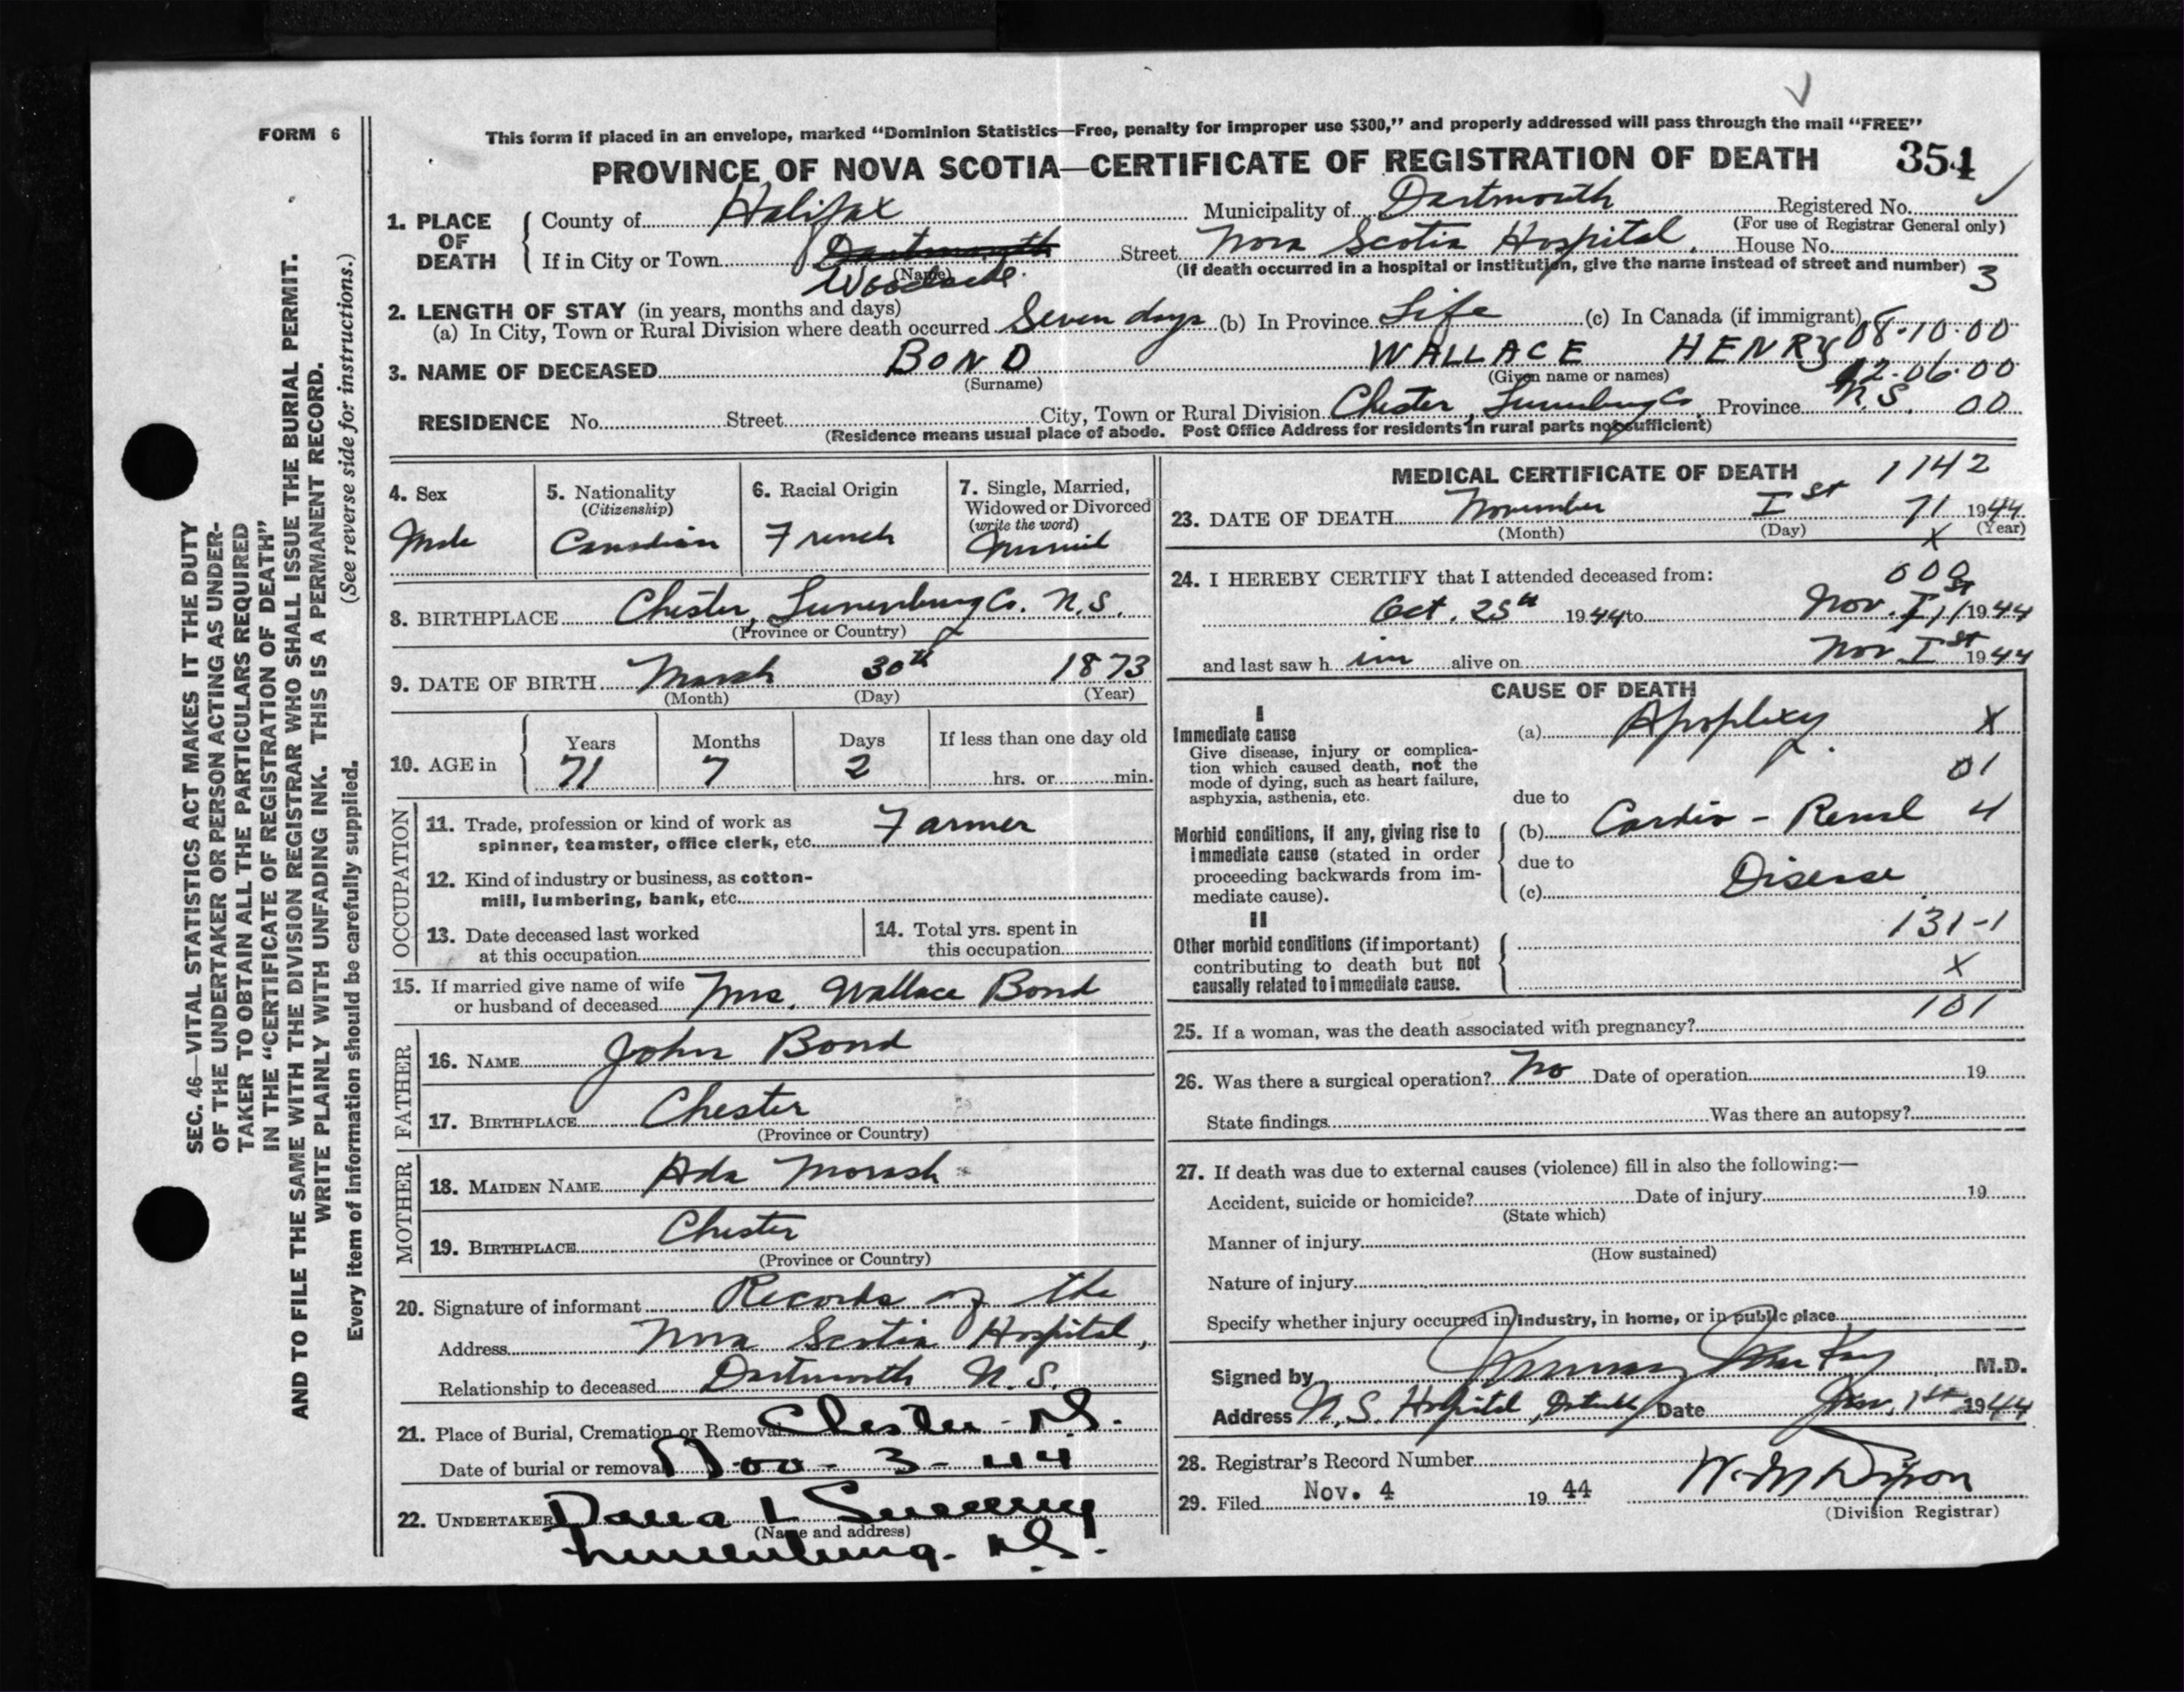 FORM 6
This form if placed in an envelope, marked “Dominion Statistics—Free, penalty for improper use $300,” and properly addressed will pass through the mail “FREE”
PROVINCE OF NOVA SCOTIA—CERTIFICATE OF REGISTRATION OF DEATH 354
1. PLACE OF DEATH County of Halifax Municipality of Dartmouth Registered No.
(For use of Registrar General only)
If in City or Town Dartmouth Street Nova Scotia Hospital. House No.
(Name) (If death occurred in a hospital or institution, give the name instead of street and number) 3
Woodside.
2. LENGTH OF STAY (in years, months and days)
(a) In City, Town or Rural Division where death occurred Seven days (b) In Province Life (c) In Canada (if immigrant)
08-10-00
3. NAME OF DECEASED BOND WALLACE HENRY
(Surname) (Given name or names) 12-06-00
RESIDENCE No. Street City, Town or Rural Division Chester, Lunenburg Co. Province N.S. 00
(Residence means usual place of abode. Post Office Address for residents in rural parts not sufficient)
4. Sex
Male
5. Nationality
(Citizenship)
Canadian
6. Racial Origin
French
7. Single, Married,
Widowed or Divorced
(write the word)
8. BIRTHPLACE Chester, Lunenburg Co. N.S.
(Province or Country)
9. DATE OF BIRTH March 30th 1873
(Month) (Day) (Year)
10. AGE in Years Months Days If less than one day old
71 7 2 hrs. or min.
OCCUPATION
11. Trade, profession or kind of work as
spinner, teamster, office clerk, etc. Farmer
12. Kind of industry or business, as cotton-
mill, lumbering, bank, etc.
13. Date deceased last worked
at this occupation
14. Total yrs. spent in
this occupation
15. If married give name of wife
or husband of deceased Mrs. Wallace Bond
FATHER
16. NAME John Bond
17. BIRTHPLACE Chester
(Province or Country)
MOTHER
18. MAIDEN NAME Ada Morash
19. BIRTHPLACE Chester
(Province or Country)
20. Signature of informant Records of the
Address Nova Scotia Hospital,
Relationship to deceased Dartmouth N.S.
21. Place of Burial, Cremation or Removal Chester N.S.
Date of burial or removal Nov - 3 - 44
22. UNDERTAKER Dana L Sweeny
(Name and address)
Lunenburg. N.S.
MEDICAL CERTIFICATE OF DEATH 1142
23. DATE OF DEATH November Ist 71 1944
(Month) (Day) X (Year)
24. I HEREBY CERTIFY that I attended deceased from: 000
Oct. 25th 1944 to Nov. Ist 1944
and last saw him alive on Nov Ist 1944
CAUSE OF DEATH
I
Immediate cause
Give disease, injury or complica-
tion which caused death, not the
mode of dying, such as heart failure,
asphyxia, asthenia, etc.
(a) Apoplexy. X
01
due to
Morbid conditions, if any, giving rise to
immediate cause (stated in order
proceeding backwards from im-
mediate cause).
(b) Cardio - Renal 4
due to
(c) Disease
II
Other morbid conditions (if important)
contributing to death but not
causally related to immediate cause.
131-1
X
101
25. If a woman, was the death associated with pregnancy?
26. Was there a surgical operation? No Date of operation 19
State findings Was there an autopsy?
27. If death was due to external causes (violence) fill in also the following:—
Accident, suicide or homicide? Date of injury 19
(State which)
Manner of injury
(How sustained)
Nature of injury
Specify whether injury occurred in industry, in home, or in public place
Signed by Murray MacKay M.D.
Address N.S. Hospital, Date Nov. 1st 1944
28. Registrar's Record Number
29. Filed Nov. 4 19 44 W. M. Dixon
(Division Registrar)
SEC. 46—VITAL STATISTICS ACT MAKES IT THE DUTY
OF THE UNDERTAKER OR PERSON ACTING AS UNDER-
TAKER TO OBTAIN ALL THE PARTICULARS REQUIRED
IN THE “CERTIFICATE OF REGISTRATION OF DEATH”
AND TO FILE THE SAME WITH THE DIVISION REGISTRAR WHO SHALL ISSUE THE BURIAL PERMIT.
WRITE PLAINLY WITH UNFADING INK. THIS IS A PERMANENT RECORD.
Every item of information should be carefully supplied. (See reverse side for instructions.)